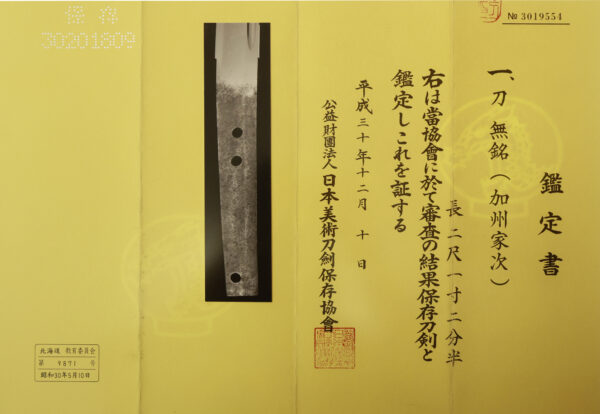 № 3019554
鑑定書
一、刀 無銘（加州家次）
長 二尺一寸二分半
右は當協會に於て審査の結果保存刀剣と
鑑定しこれを証する
平成三十年十二月 十 日
公益財團法人日本美術刀劍保存協會
保存
30201809
北海道 教育委員会
第 9871 号
昭和30年5月10日